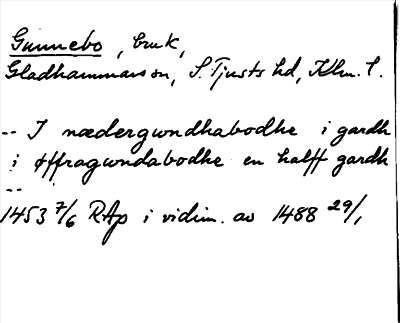 Gunnebo, bruk,
Gladhammars sn, S. Tjusts hd, Klm. l.
-- I nædergwndhabodhe i gardh
i øffragwndabodhe en halff gardh
--
1453 7/6 RAp i vidim. av 1488 29/1